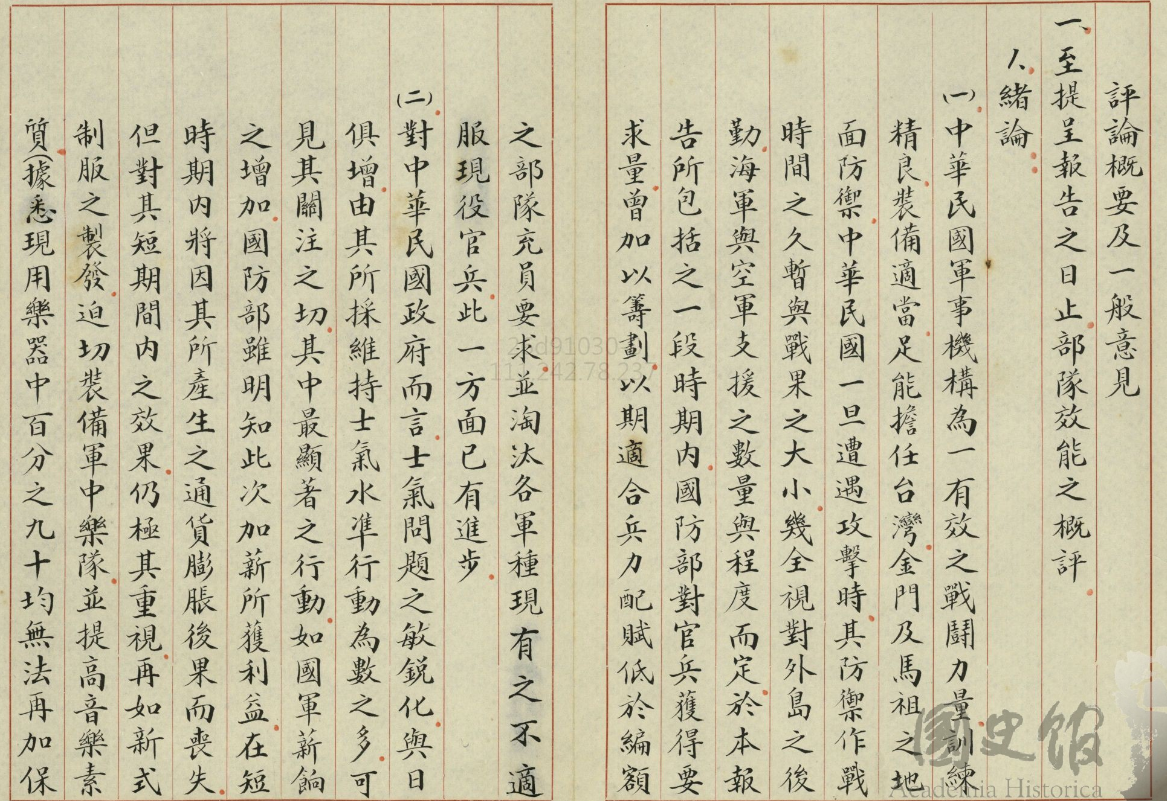 評論概要及一般意見
一、至提呈報告之日止部隊效能之概評
1.緒論
(一)中華民國軍事機構為一有效之戰鬪力量訓練
精良裝備適當足能擔任台灣金門及馬祖之地
面防禦中華民國一旦遭遇攻擊時其防禦作戰
時間之久暫與戰果之大小幾全視對外島之後
勤海軍與空軍支援之數量與程度而定於本報
告所包括之一段時期內國防部對官兵獲得要
求量曾加以籌劃以期適合兵力配賦低於編額
之部隊充員要求並淘汰各軍種現有之不適
服現役官兵此一方面已有進步
(二)對中華民國政府而言士氣問題之敏銳化與日
俱增由其所採維持士氣水準行動為數之多可
見其關注之切其中最顯著之行動如國軍薪餉
之增加國防部雖明知此次加薪所獲利益在短
時期內將因其所產生之通貨膨脹後果而喪失
但對其短期間內之效果仍極其重視再如新式
制服之製發迫切裝備軍中樂隊並提高音樂素
質(據悉現用樂器中百分之九十均無法再加保
國史館
Academia Historica